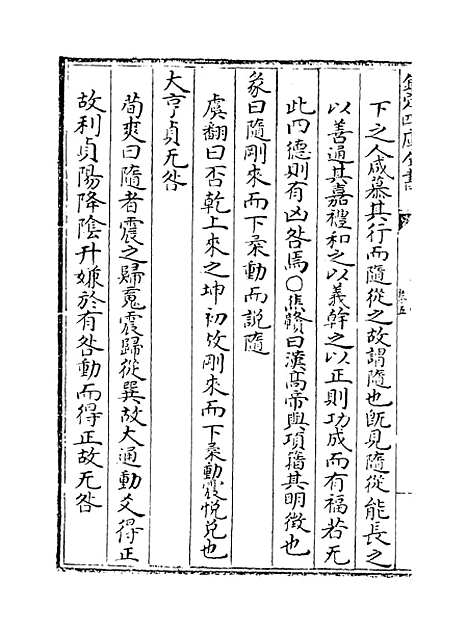 欽定四庫全書
下之人咸慕其行而隨從之故謂隨也既見隨從能長之
以善通其嘉禮和之以義幹之以正則功成而有福若无
此四德則有凶咎焉○焦贛曰漢高帝與項籍其明徵也
彖曰隨剛來而下柔動而說隨
虞翻曰否乾上來之坤初故剛來而下柔動震悅兌也
大亨貞无咎
荀爽曰隨者震之歸䰟震歸從巽故大通動爻得正
故利貞陽降陰升嫌於有咎動而得正故无咎